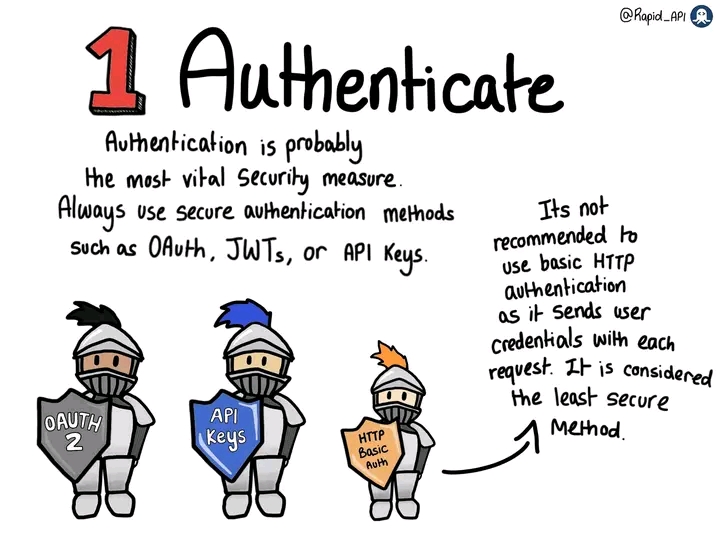 @Rapid_API
1 Authenticate
Authentication is probably
the most vital security measure.
Always use secure authentication methods
such as OAuth, JWTs, or API Keys.
Its not
recommended to
use basic HTTP
authentication
as it sends user
credentials with each
request. It is considered
the least secure
method.
OAUTH
2
API
Keys
HTTP
Basic
Auth